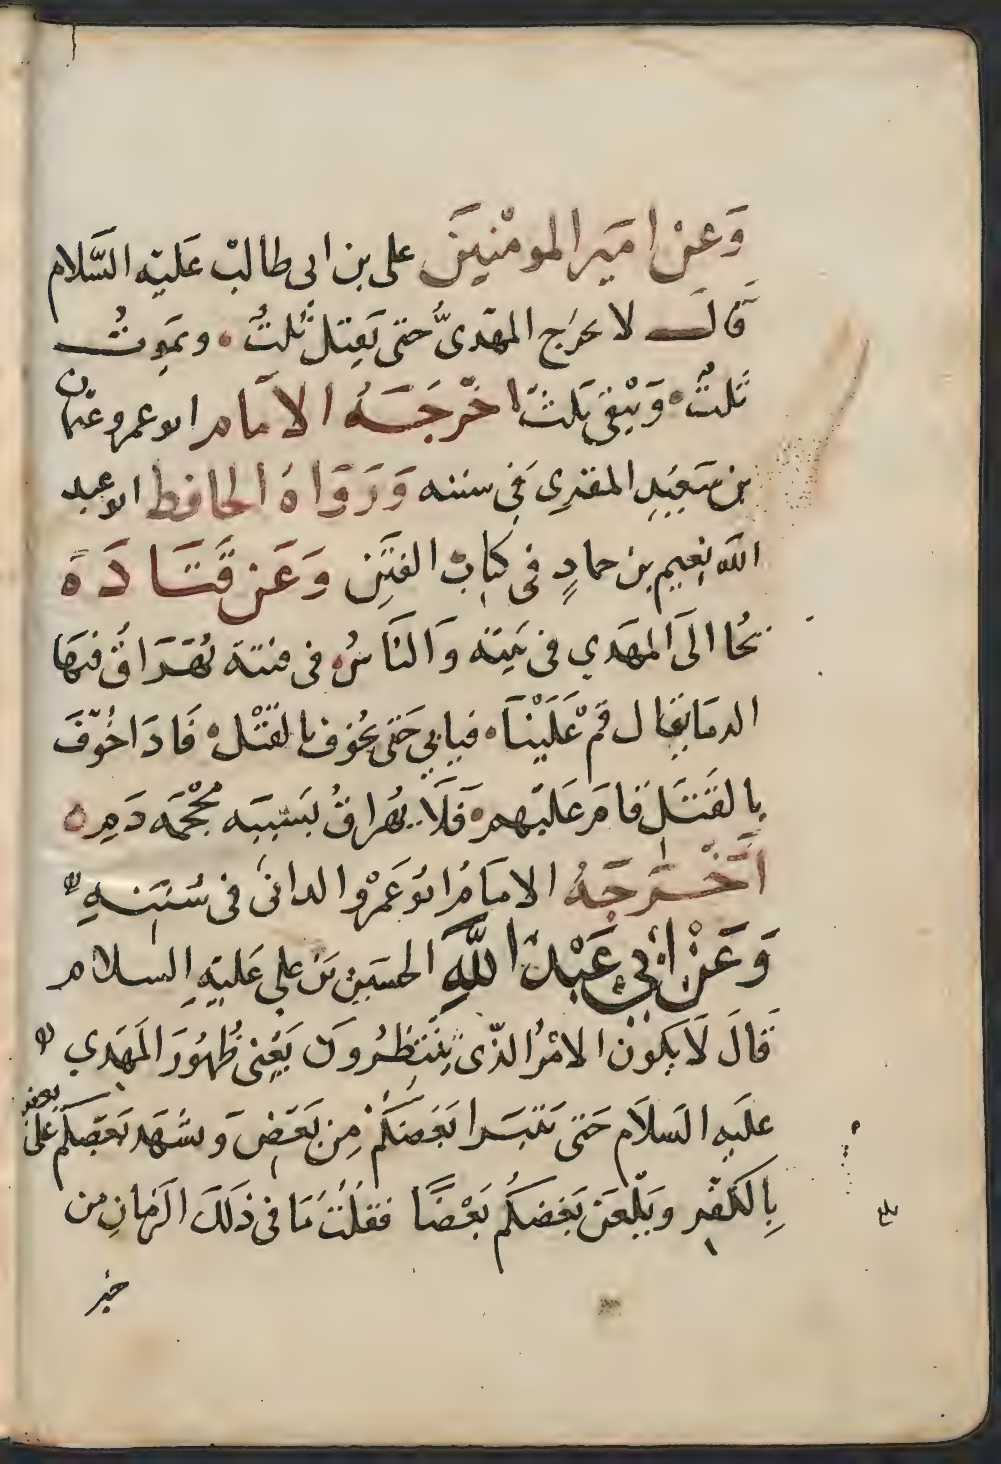 وَعَنْ امَيرالمومْنينَ على بن ابى طالبْ عَليْهِ السَّلام
قَالَ لا يخرَج المهدىُّ حتى يقتل ثلثُ ويموتُ
ثلثٌ وَيبْقى ثلثٌ اخْرَجَهُ الامَام ابو عمرو عثمان
بن سَعيدِ المقرى فى سننه وَرَوَاهُ الحافظ ابو عبد
الله نعيم بن حمادٍ فى كتاب الفتَن وَعَن قَتَادَةَ
يجُا الىَ المهَدي فى بَيته وَالنَاسُ فى فتنة يُهَرَاقُ فيهَا
الدمَا يقال قمْ عَلَيْنَا فيابى حَتى يخُوف بالقَتْل فَاذَا خُوّفَ
بالقَتَل قامَ عَليهم فَلَا يهُراقُ بسَبِبَه مِحْجمَه دَمِ
اَخْرَجَهُ الامَامُ ابوُ عَمْرو الدانى فى سُنَنهِ
وَعَنْ ابْي عَبْد اللَّهِ الحسَين بْن علي عَليْهِ السلام
قَالَ لَا يكوُن الامْرُ الذّى ينَتظرُونَ يَعْنى ظُهُورَ المَهَدي
علَيهِ السَلاَم حَتى يتبَرا بَعَضكُمْ مِن بَعَض وَيشهَد بَعَضكم علىَ بعض
بِالكفْر ويَلْعَن بَعَضكُم بَعْضًا فقلتُ مَا فى ذلكَ الزمَانِ من
خير
بلغ